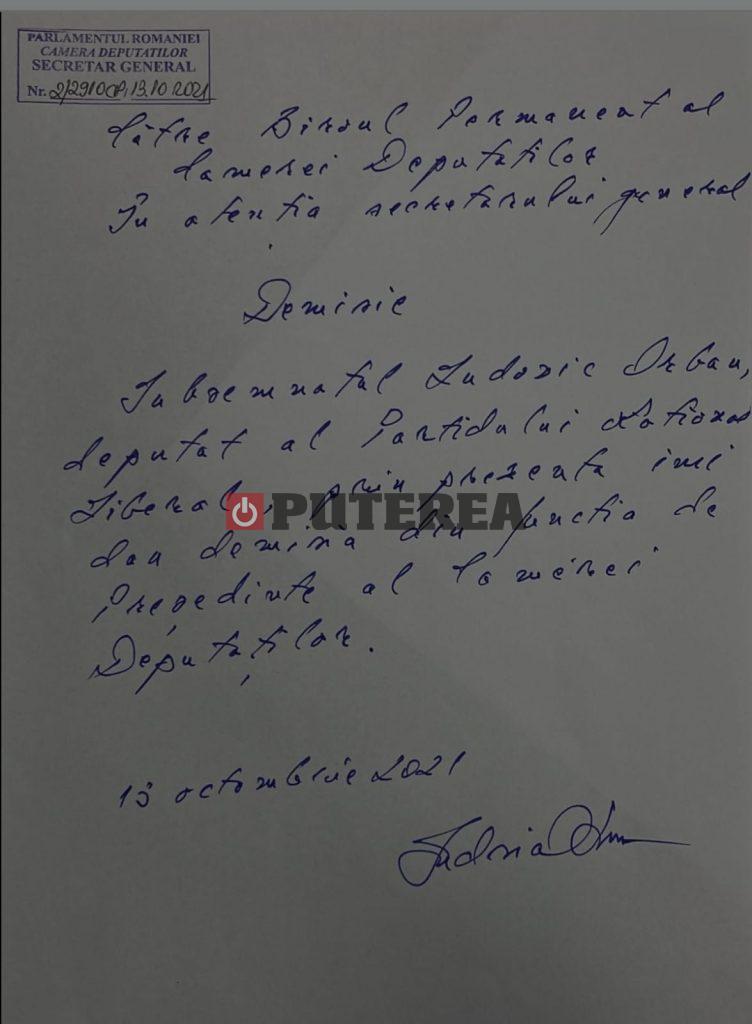 PARLAMENTUL ROMANIEI
CAMERA DEPUTATILOR
SECRETAR GENERAL
Nr. 2/2910CP, 13.10.2021
Către Biroul Permanent al
Camerei Deputatilor
În atentia secretarului general
Demisie
Subsemnatul Ludovic Orban,
deputat al Partidului National
Liberal, prin prezenta imi
dau demisia din functia de
Președinte al Camerei
Deputaților.
PUTEREA
13 octombrie 2021